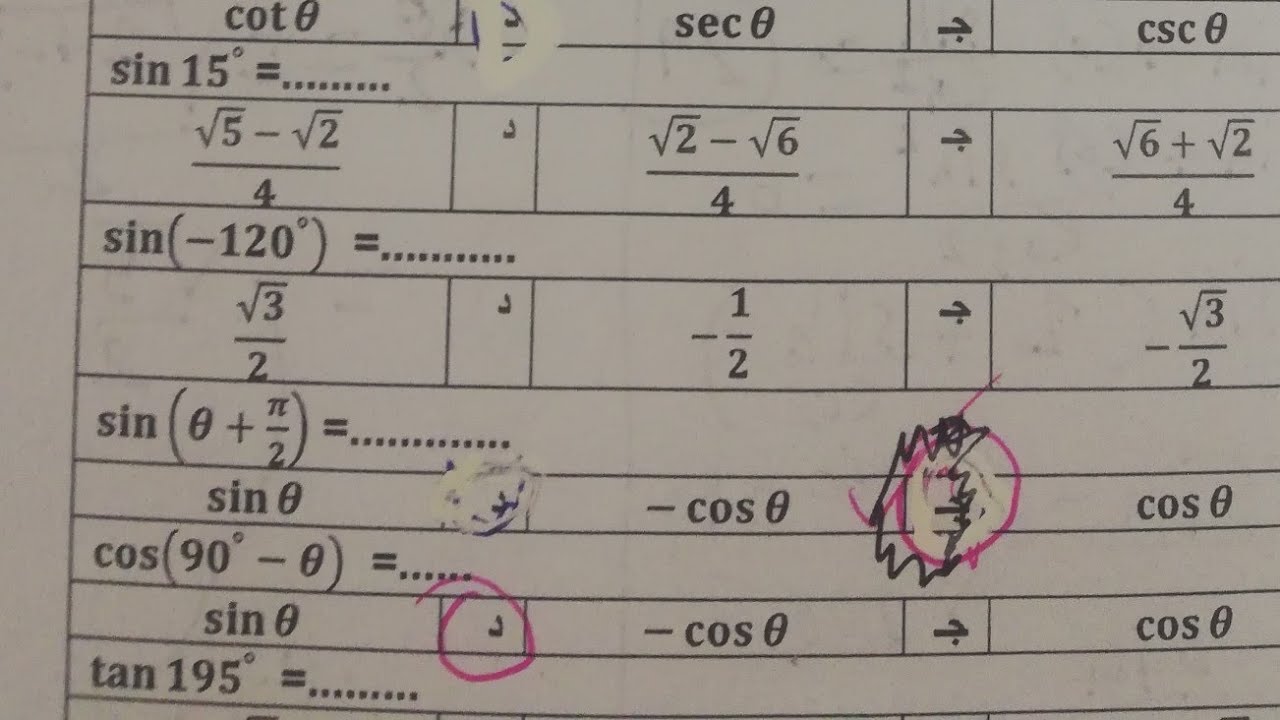 cot θ د sec θ ج csc θ
sin 15° =.........
(√5 − √2)/4 د (√2 − √6)/4 ج (√6 + √2)/4
sin(−120°) =...........
√3/2 د −1/2 ج −√3/2
sin(θ + π/2) =.............
sin θ − cos θ cos θ
cos(90° − θ) =......
sin θ د − cos θ ج cos θ
tan 195° =.........